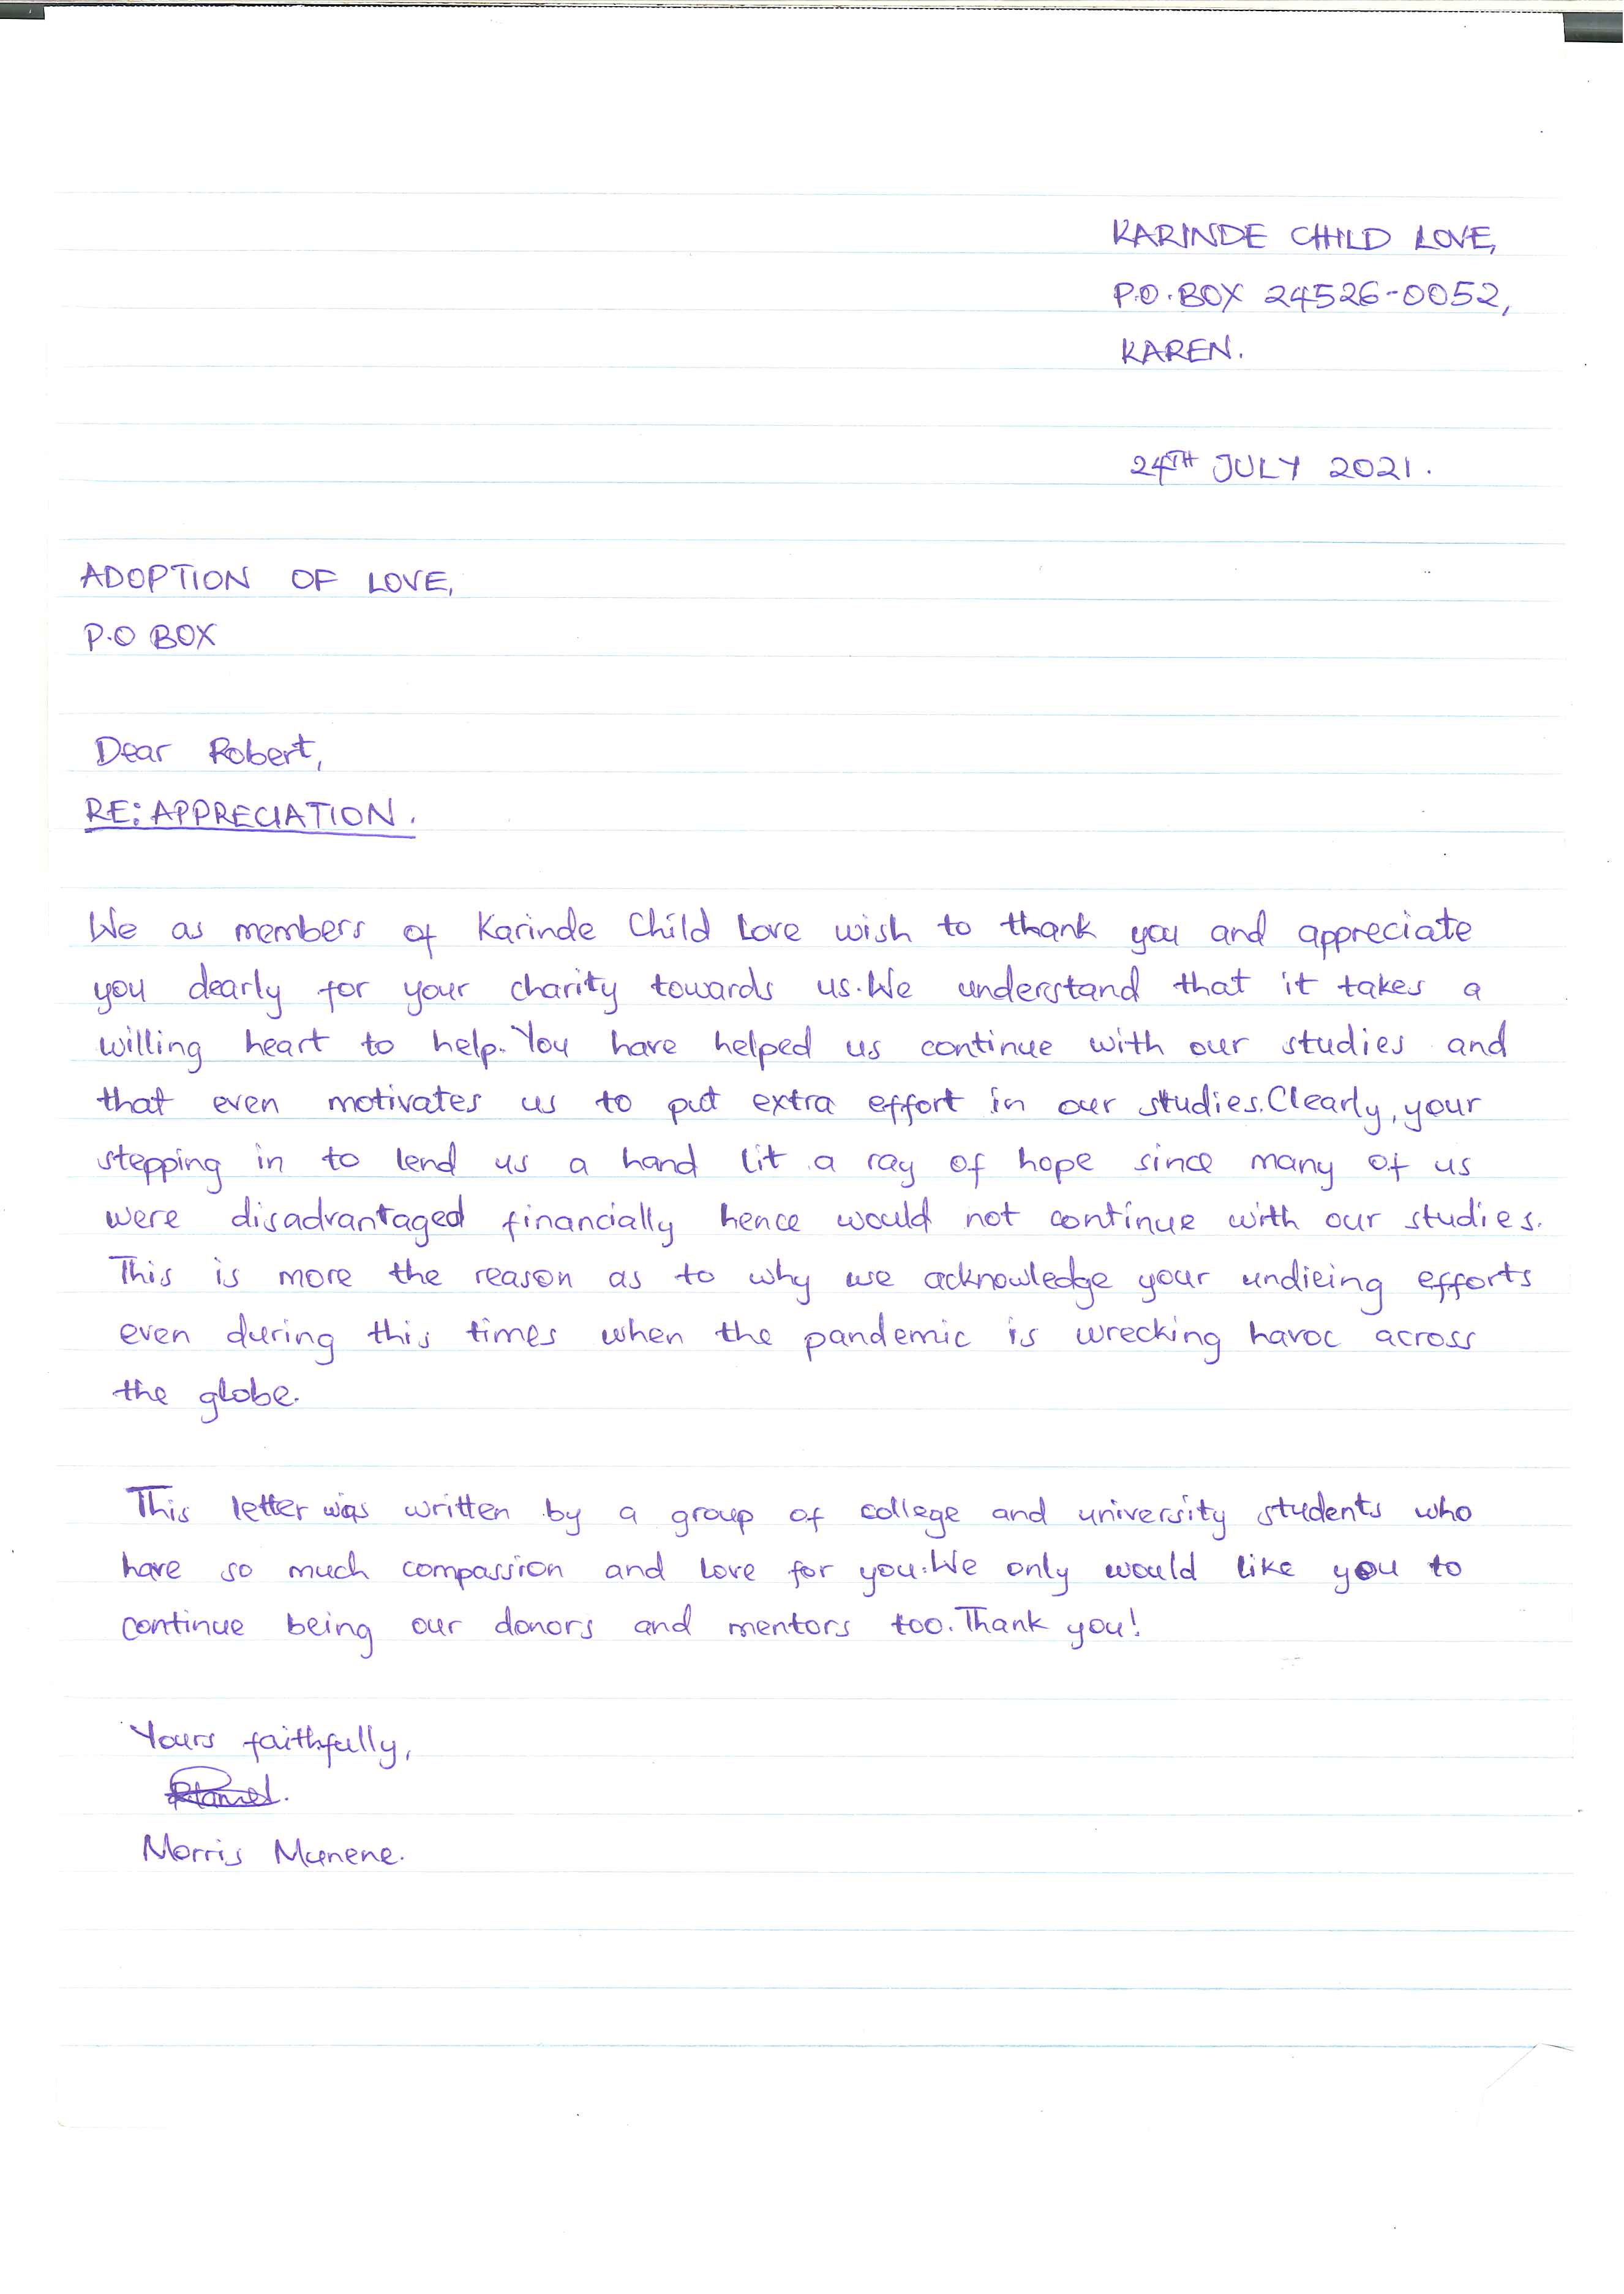 KARINDE CHILD LOVE,
P.O.BOX 24526-0052,
KAREN.
24TH JULY 2021.
ADOPTION OF LOVE,
P.O BOX
Dear Robert,
RE: APPRECIATION.
We as members of Karinde Child Love wish to thank you and appreciate
you dearly for your charity towards us. We understand that it takes a
willing heart to help. You have helped us continue with our studies and
that even motivates us to put extra effort in our studies. Clearly, your
stepping in to lend us a hand lit a ray of hope since many of us
were disadvantaged financially hence would not continue with our studies.
This is more the reason as to why we acknowledge your undieing efforts
even during this times when the pandemic is wrecking havoc across
the globe.
This letter was written by a group of college and university students who
have so much compassion and love for you. We only would like you to
continue being our donors and mentors too. Thank you!
Yours faithfully,
Morris Munene.